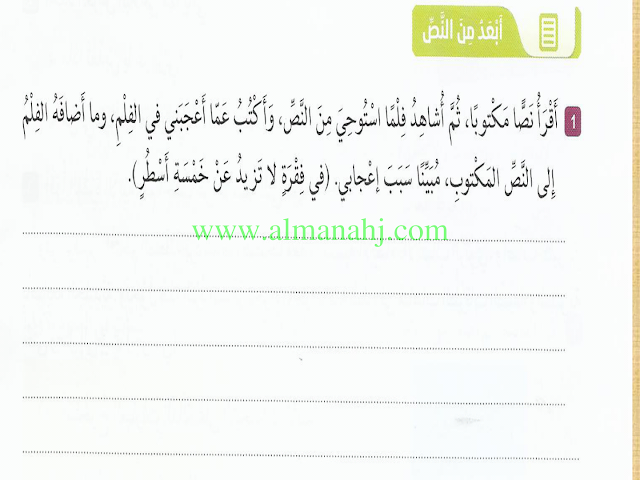 أَبْعَدُ مِنَ النَّصِّ
1 أَقْرَأُ نَصًّا مَكْتوبًا، ثُمَّ أُشاهِدُ فِلْمًا اسْتُوحِيَ مِنَ النَّصِّ، وَأَكْتُبُ عَمّا أَعْجَبَني في الفِلْمِ، وما أَضافَهُ الفِلْمُ
إِلى النَّصِّ المَكْتوبِ، مُبَيِّنًا سَبَبَ إِعْجابي. (في فِقْرَةٍ لا تَزيدُ عَنْ خَمْسَةِ أَسْطُرٍ).
www.almanahj.com